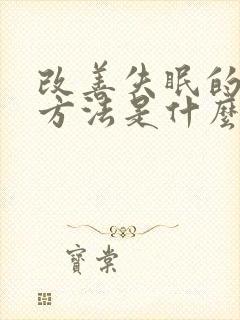 改善失眠的
方法是什麼
寶棠